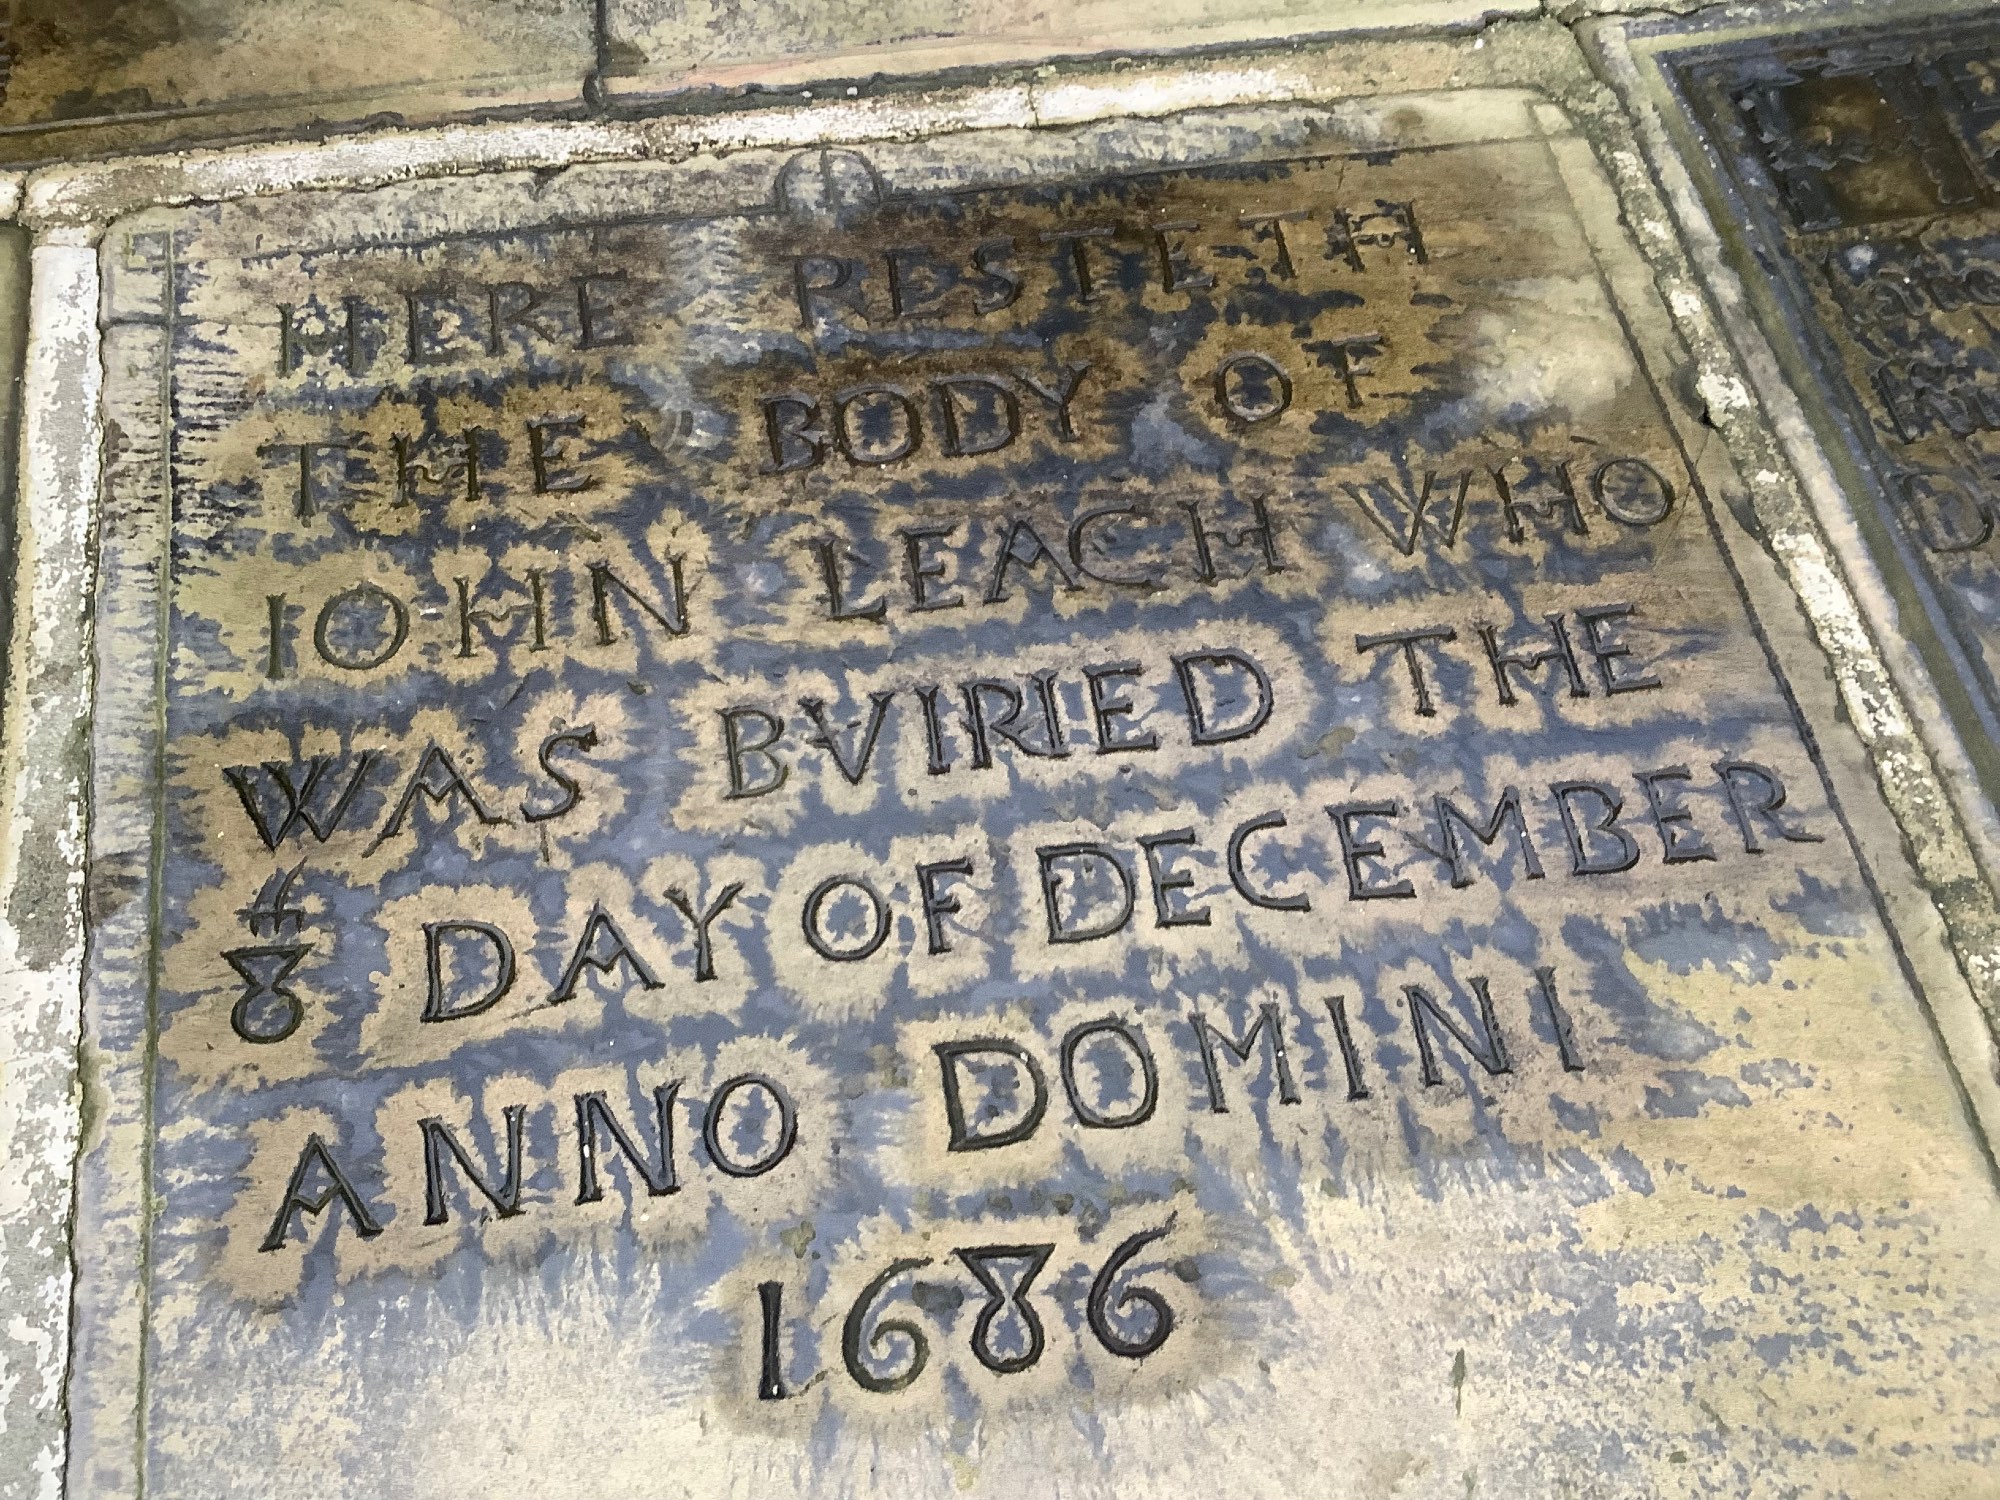 HERE RESTETH
THE BODY OF
IOHN LEACH WHO
WAS BVIRIED THE
8th DAY OF DECEMBER
ANNO DOMINI
1686